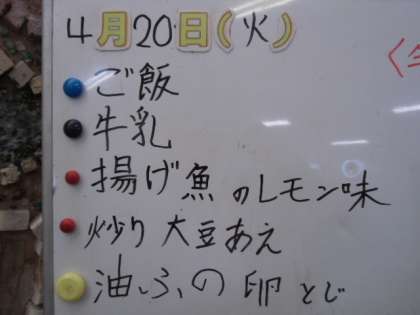 4月20日(火)
ご飯
牛乳
揚げ魚のレモン味
炒り大豆あえ
油ふの卵とじ